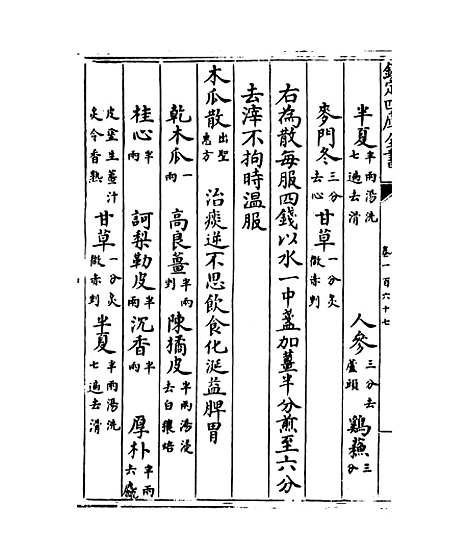 欽定四庫全書
卷一百六十七
半夏半兩湯洗七遍去滑 人參三分去蘆頭 鷄蘇三分
麥門冬三分去心 甘草一分炙微赤剉
右為散每服四錢以水一中盞加薑半分煎至六分
去滓不拘時温服
木瓜散出聖惠方 治痰逆不思飲食化涎益脾胃
乾木瓜一兩 高良薑半兩剉 陳橘皮半兩湯浸去白穰焙
桂心半兩 訶梨勒皮半兩 沉香半兩 厚朴半兩去麄
皮塗生薑汁炙令香熟 甘草一分炙微赤剉 半夏半兩湯洗七遍去滑